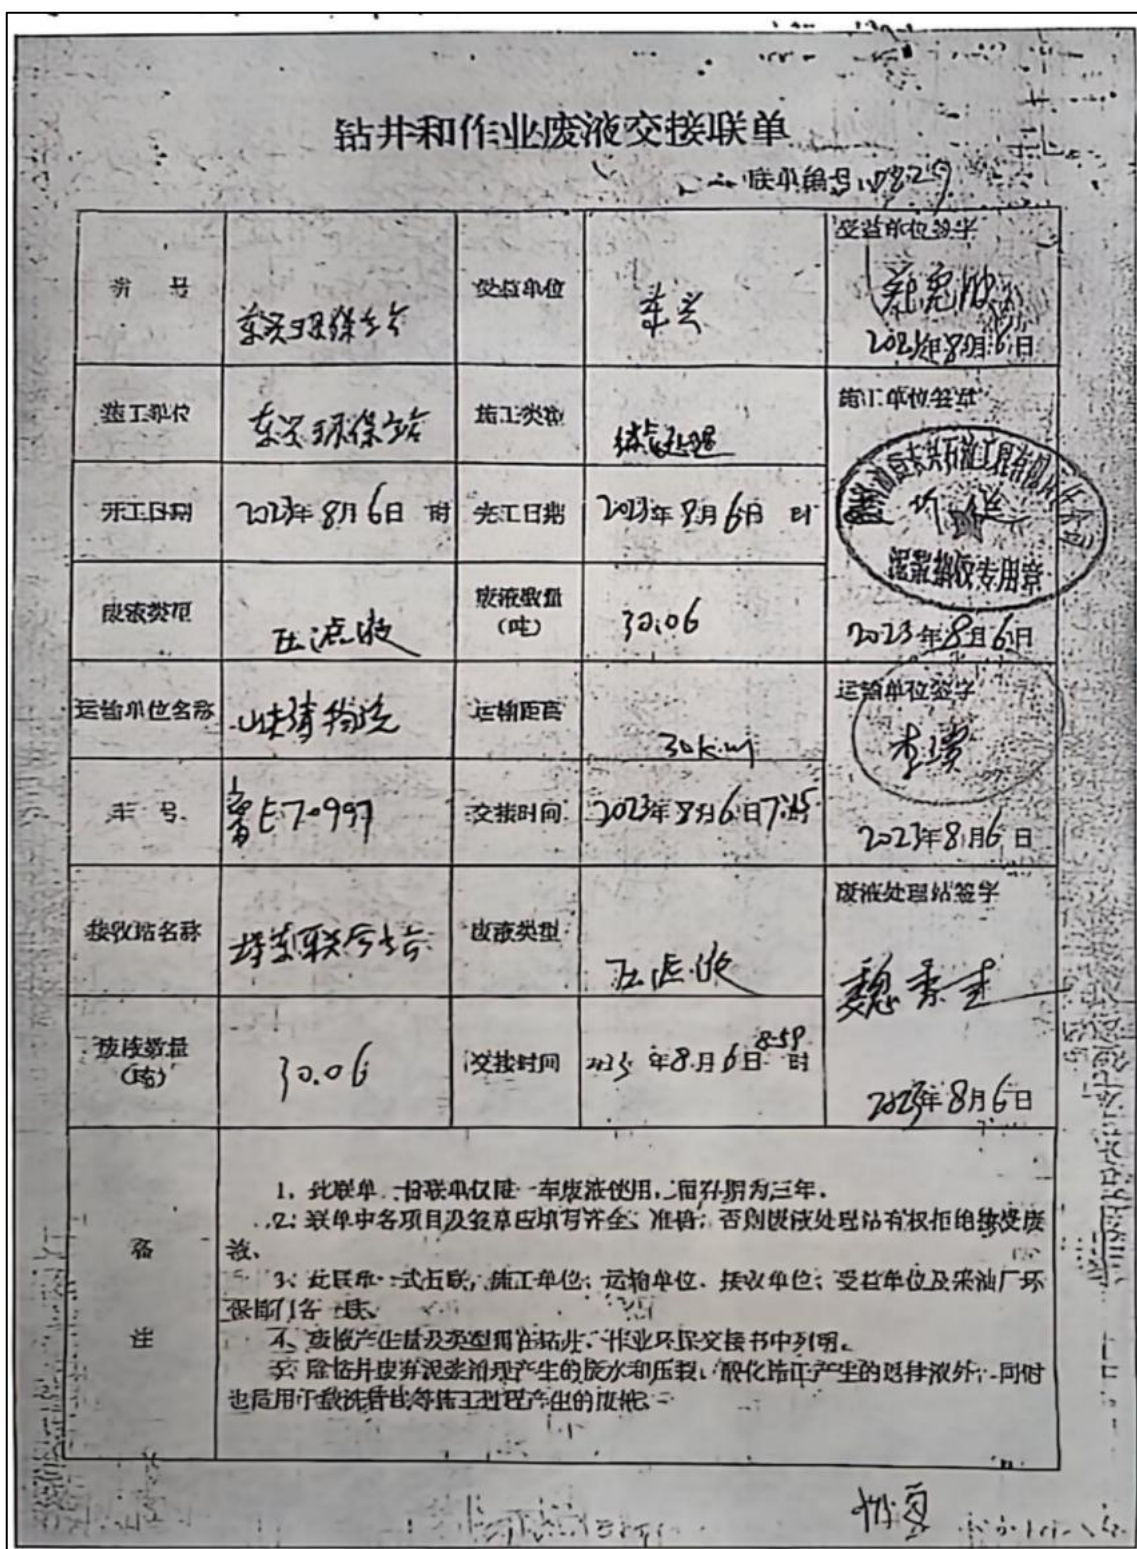 钻井和作业废液交接联单
联单编号
井 号
东兴环保站
受益单位
东兴
受益单位签字
2023年8月6日
施工单位
东兴环保站
施工类型
施工单位签章
泥浆接收专用章
开工日期
2023年8月6日 时
完工日期
2023年8月6日 时
废液类型
压滤液
废液数量
(吨)
30.06
2023年8月6日
运输单位名称
物流
运输距离
30km
运输单位签字
2023年8月6日
车 号
鲁E70997
交接时间
2023年8月6日7:45
接收站名称
联合站
废液类型
压滤液
废液处理站签字
废液数量
(吨)
30.06
交接时间
2023年8月6日8:59时
2023年8月6日
备
注
1、此联单一份联单仅限一车废液使用,保存期为三年。
2、联单中各项目及签章应填写齐全、准确,否则废液处理站有权拒绝接受废
液。
3、此联单一式五联,施工单位、运输单位、接收单位、受益单位及采油厂环
保部门各一联。
4、废液产生量及类型需在钻井、作业环保交接书中列明。
5、除钻井废弃泥浆治理产生的废水和压裂、酸化施工产生的返排液外,同时
也适用于 施工过程产生的废液。